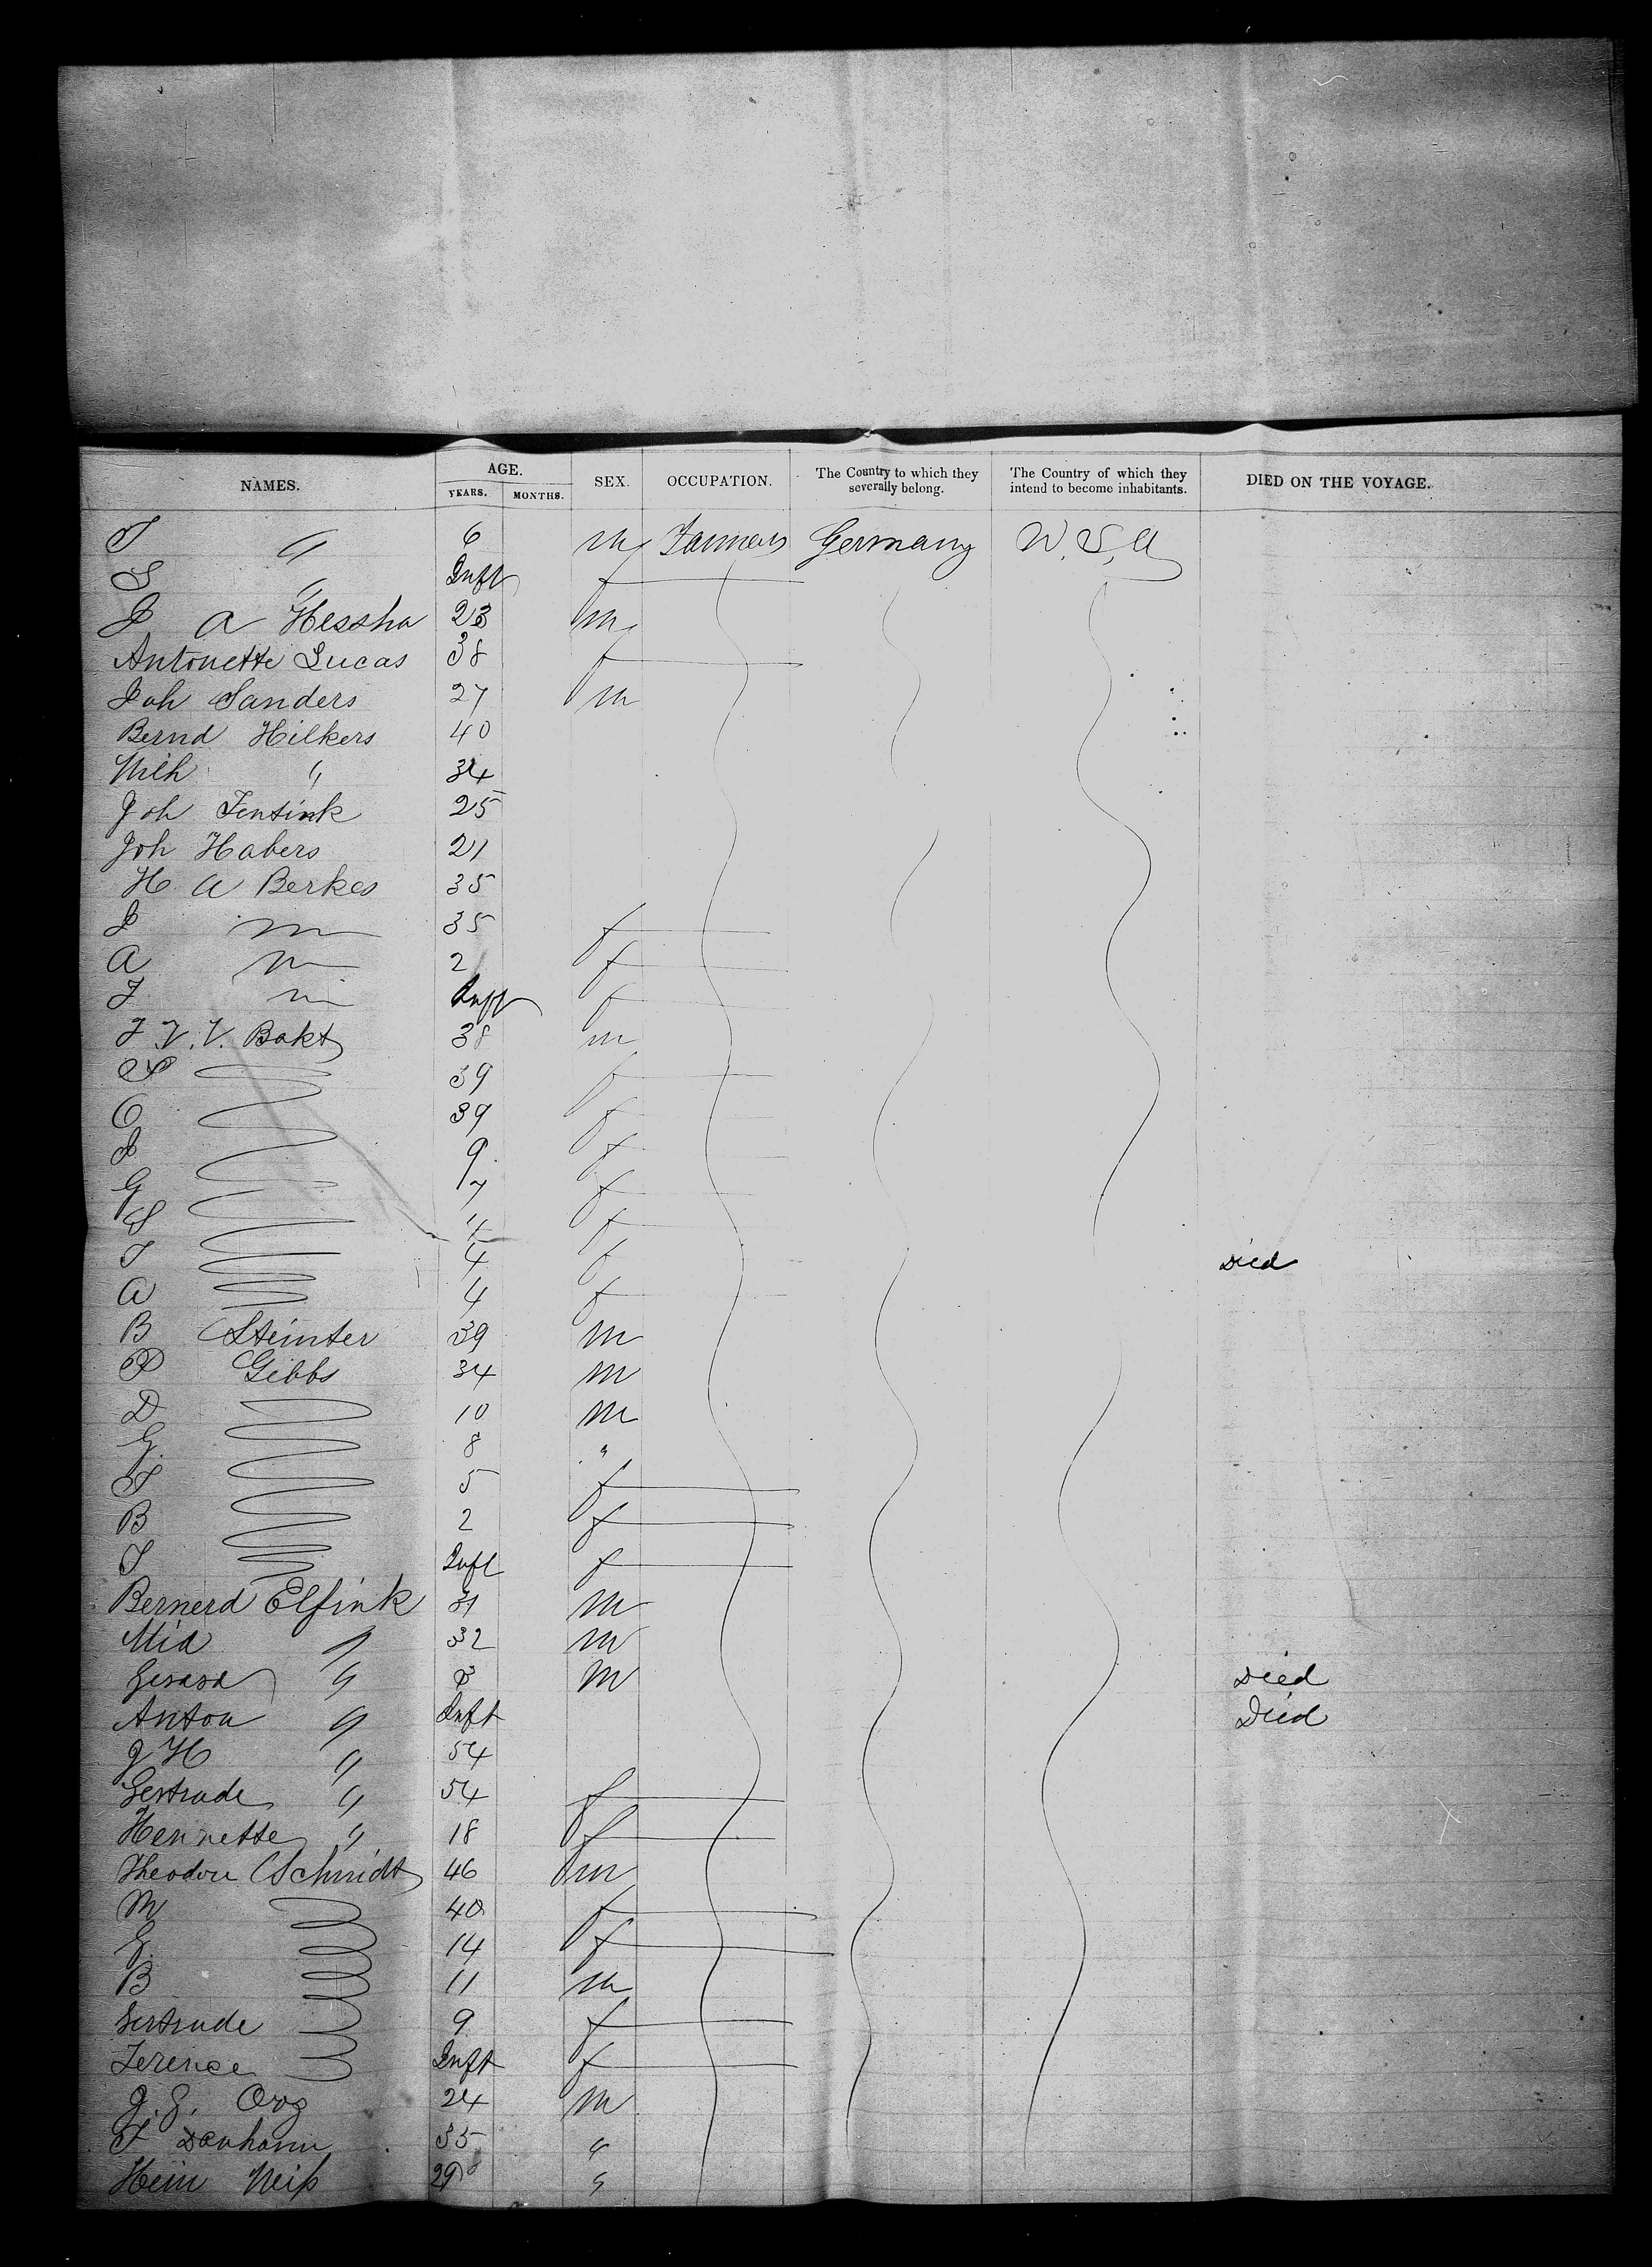 NAMES. AGE. YEARS. MONTHS. SEX. OCCUPATION. The Country to which they severally belong. The Country of which they intend to become inhabitants. DIED ON THE VOYAGE.
S " 6 m Farmers Germany U.S.A
S " Inft f
J A Hessha 23 m
Antonette Lucas 38 f
Joh Sanders 27 m
Bernd Hilkers 40
Wilh " 34
Joh Tentink 25
Joh Habers 21
H A Berkes 35
J 35 f
A 2 f
J Inft f
J. V. V. Bokt 38 m
39 f
C 39 f
J 9 f
G 7 f
S 4 f
S 4 f Died
A 4 f
B Steinter 39 m
P Gibbs 34 m
D 10 m
G. 8 "
S 5 f
B 2 f
S Inft f
Bernerd Elfink 31 m
Mia " 32 m
Gerard " 3 m Died
Anton " Inft Died
J H " 54
Gertrude " 54 f
Hennette " 18 f
Theodore Schmidt 46 m
M 40 f
G. 14 f
B 11 m
Gertrude 9 f
Terence Inft f
J. G. Org 24 m
T Denhann 35 "
Hein Neiß 29 "